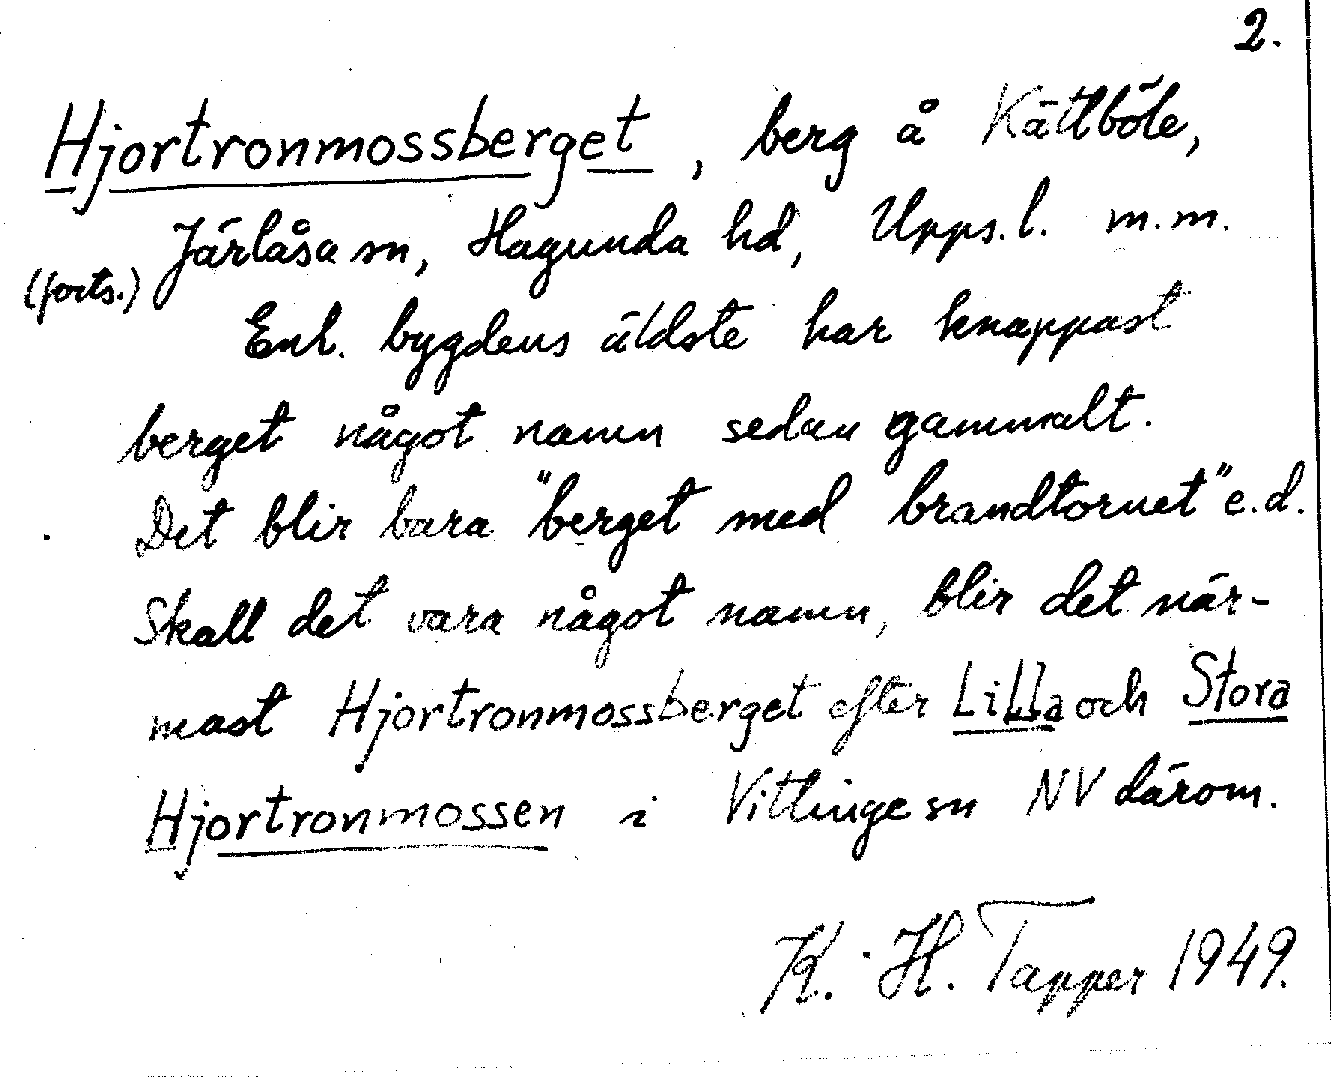 2.
Hjortronmossberget, berg å Kättböle,
Järlåsa sn, Hagunda hd, Upps. l. m.m.
(forts.)
Enl. bygdens äldste har knappast
berget något namn sedan gammalt.
Det blir bara "berget med brandtornet" e.d.
Skall det vara något namn, blir det när-
mast Hjortronmossberget efter Lilla och Stora
Hjortronmossen i Vittinge sn NV därom.
K. H. Tapper 1949.